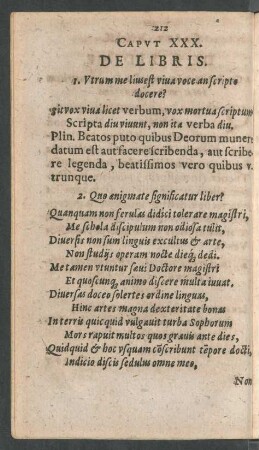 212
CAPVT XXX.
DE LIBRIS.
1. Vtrum melius est viua voce an scripto
docere?
Sit vox viua licet verbum, vox mortua scriptum
Scripta diu viuunt, non ita verba diu.
Plin. Beatos puto quibus Deorum munere
datum est aut facere scribenda, aut scribe
re legenda, beatissimos vero quibus v.
trunque.
2. Quo ænigmate significatur liber?
Quanquam non ferulas didici tolerare magistri,
Me schola discipulum non odiosa tulit,
Diuersis non sum linguis excultus & arte,
Non studijs operam nocte dieq; dedi.
Me tamen viuntur sæui Doctore magistri
Et quoscunq; animo discere multa iuuat.
Diuersas doceo solertes ordine linguas,
Hinc artes magna dexteritate bonas
In terris quicquid vulgauit turba Sophorum
Mors rapuit multos quos grauis ante dies,
Quidquid & hoc vsquam cõscribunt tẽpore docti,
Indicio discis sedulus omne meo,
Non